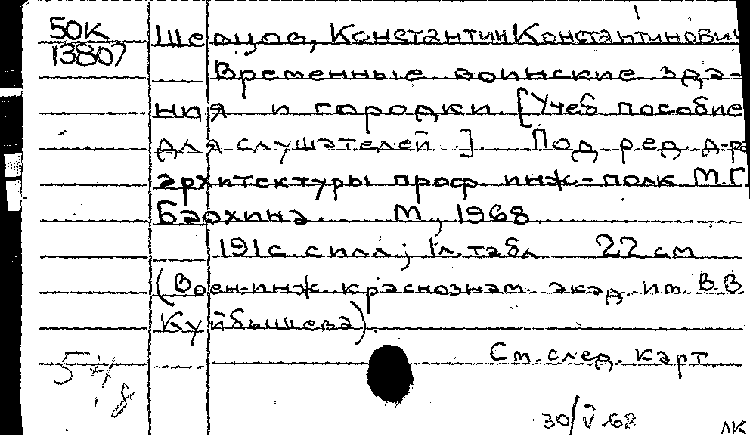 50К
13807
Шевцов, Константин Константинович
Временные воинские зда-
ния и городки. [Учеб пособие
для слушателей]. Под ред. д-ра
архитектуры проф. инж-полк М.Г.
М., 1968
191 с с илл; 1 л. табл 22 см
(Воен.-инж. краснознам акад. им В В
Куйбышева).
См. след. карт
30/V 68
ЛК